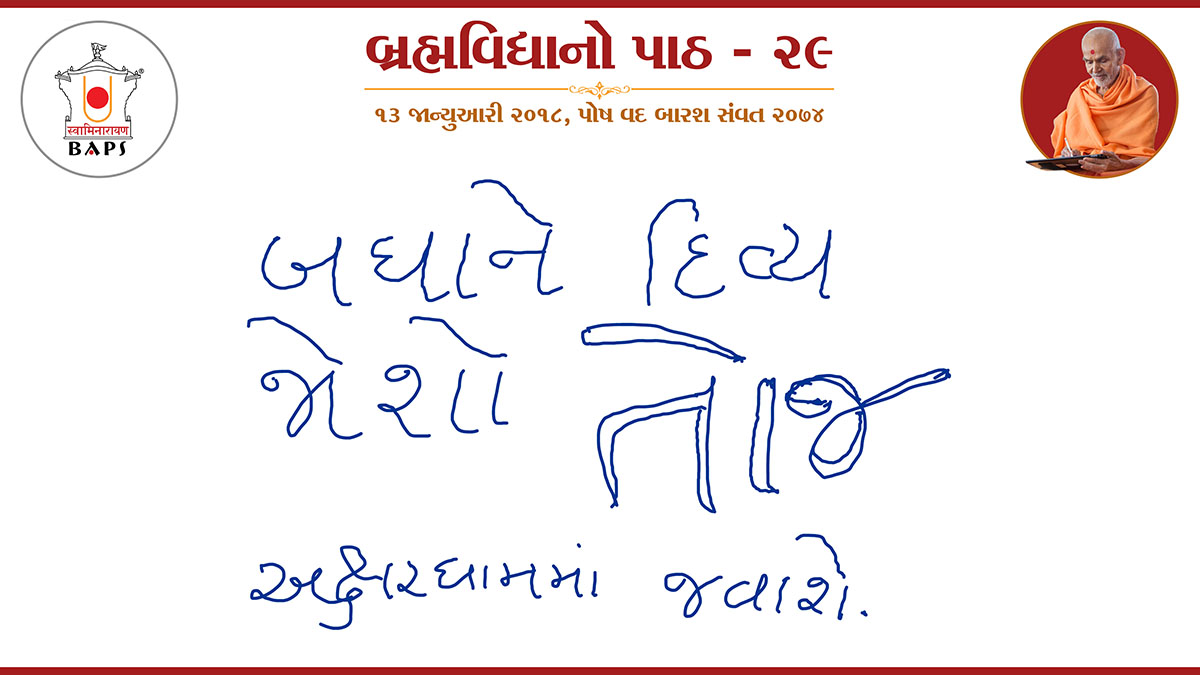 બ્રહ્મવિદ્યાનો પાઠ - ૨૯
૧૩ જાન્યુઆરી ૨૦૧૮, પોષ વદ બારશ સંવત ૨૦૭૪
स्वामिनारायण
BAPS
બધાને દિવ્ય
જોશો તોજ
અક્ષરધામમાં જવાશે.